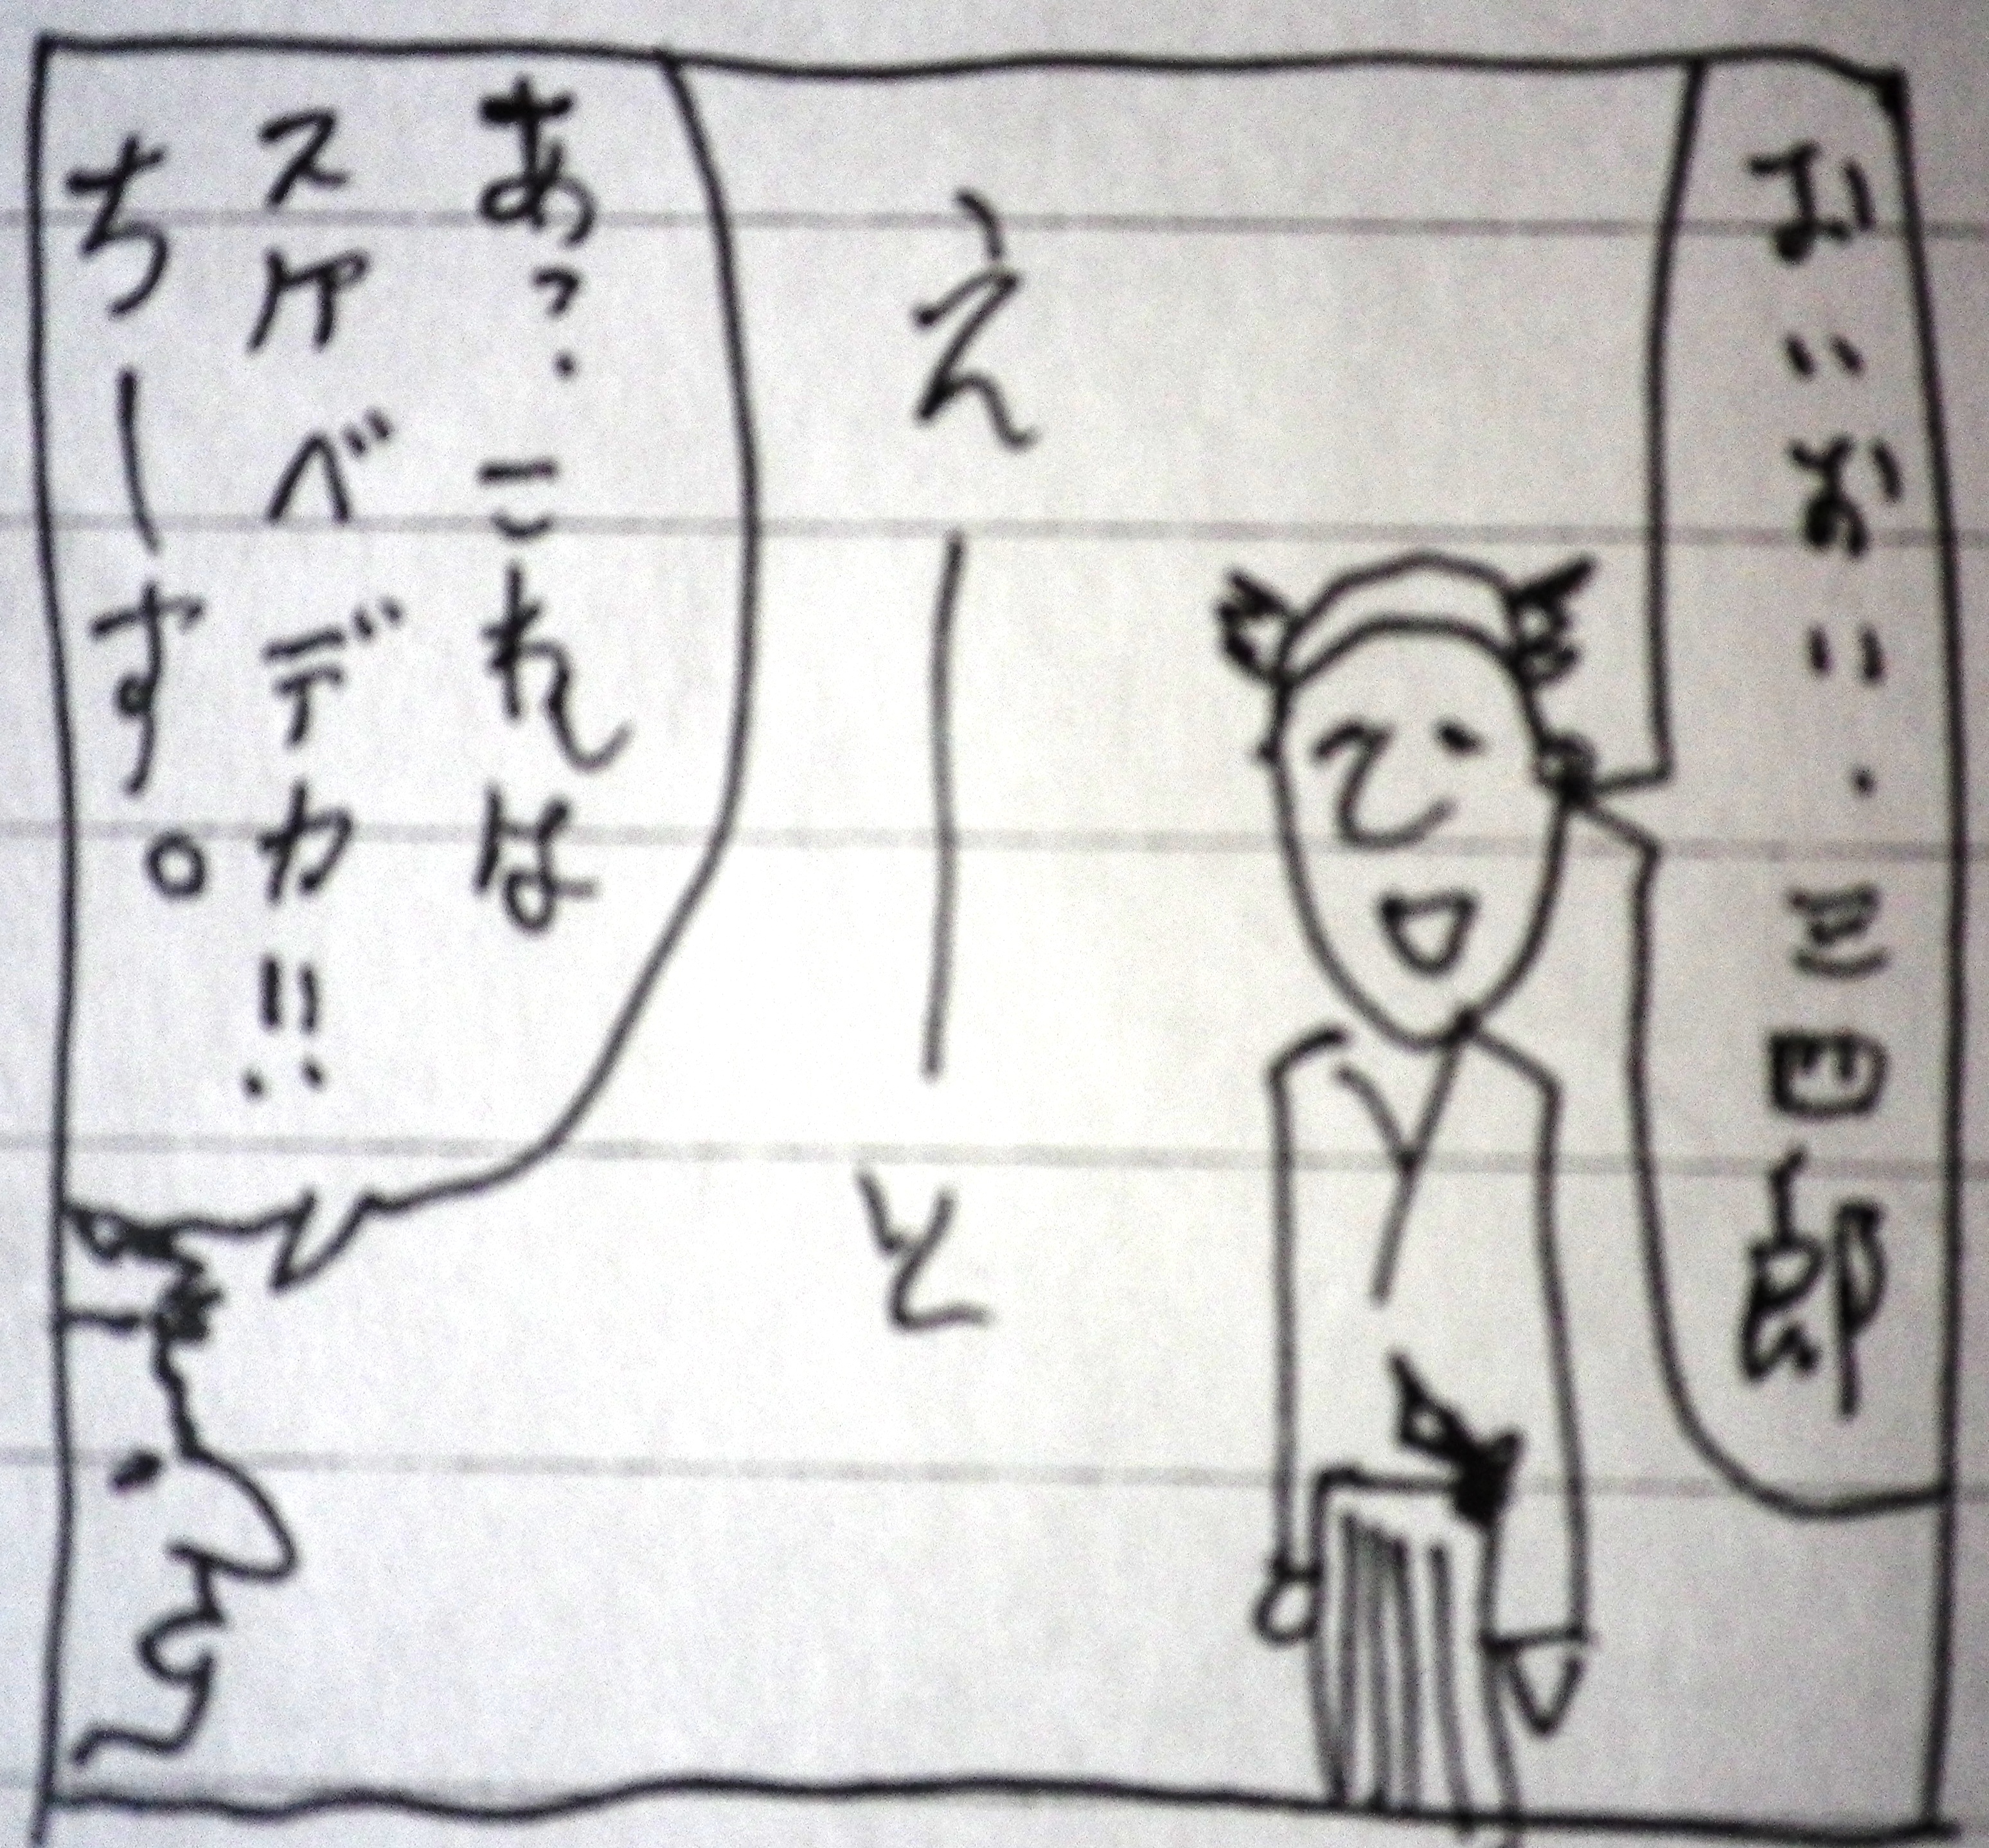 おいおい・三日郎
え一と
あっ・これは
スケベデカ!!
ちーす。